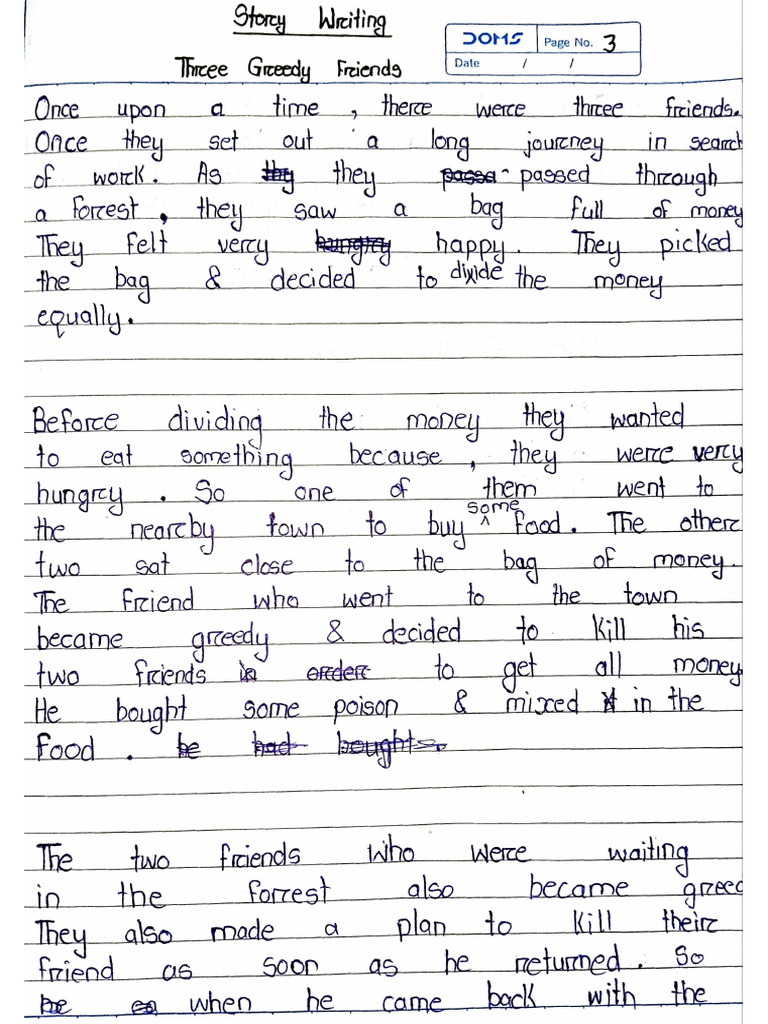 Story Writing
DOMS Page No. 3
Date / /
Three Greedy Friends
Once upon a time , there were three friends.
Once they set out a long journey in search
of work. As they passed through
a forrest, they saw a bag full of money
They felt very happy. They picked
the bag & decided to divide the money
equally.
Before dividing the money they wanted
to eat something because , they were very
hungry . So one of them went to
the nearby town to buy some food. The other
two sat close to the bag of money.
The friend who went to the town
became greedy & decided to kill his
two friends to get all money
He bought some poison & mixed in the
food .
The two friends who were waiting
in the forrest also became greed
They also made a plan to kill their
friend as soon as he returned. So
when he came back with the